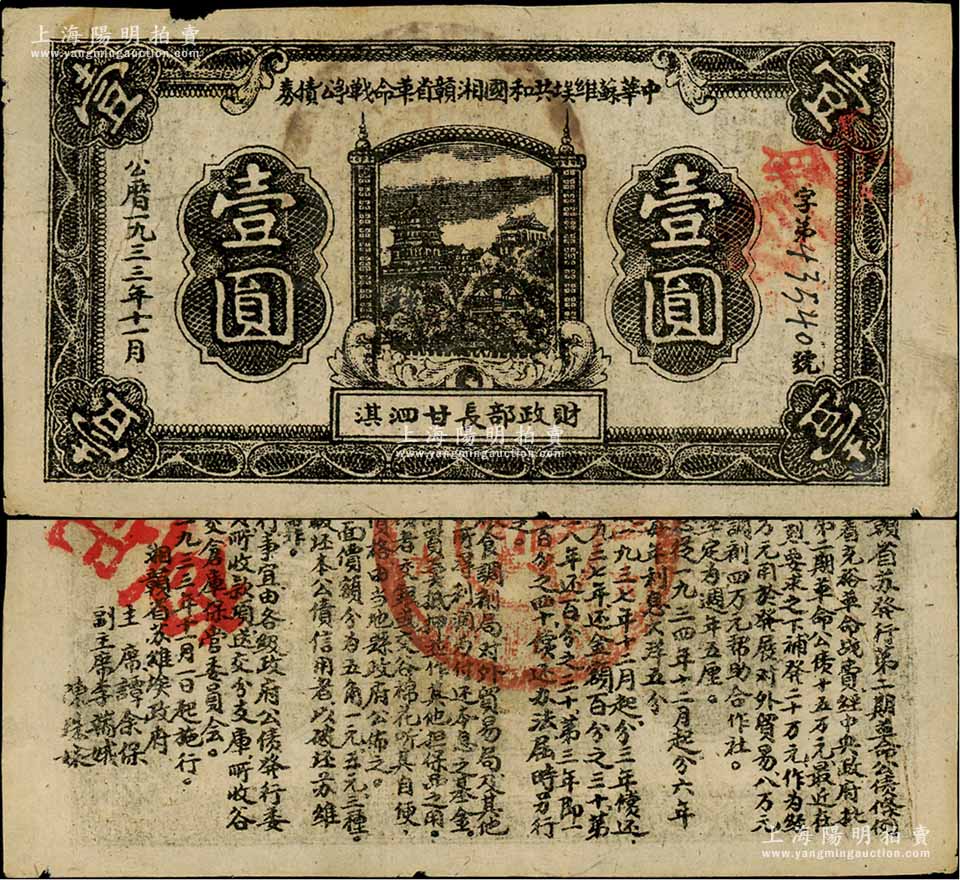 上海陽明拍賣
www.yangmingauction.com
中華蘇維埃共和國湘贛省革命战争公債券
壹
壹
壹圓
壹圓
公曆一九三三年十一月
字第43540號
財政部長甘泗淇
壹
壹
上海陽明拍賣
www.yangmingauction.com
贛省苏發行第二期革命公債條例
着充裕革命战費經中央政府批
第二期革命公債十五万元最近在
到要求之下補發二十万元作為經
万元用於發展对外貿易八万元
調剂四万元帮助合作社。
率定為週年五厘。
一九三四年十二月起分六年
每年利息大洋五分
一九三七年十二月起分三年償还
九三七年还金額百分之三十第
八年还百分之三十第三年即一
百分之四十償还办法屆時另行
食調剂局对外貿易局及其他
所得利潤为償还本息之基金。
買賣抵押並作其他担保品之用。
者交銀或交谷棉花听其自便
價格由当地縣政府公佈之。
面價額分为五角一元五元三種。
破坏本公債信用者以破坏苏維
行事宜由各級政府公債發行委
所收款項送交分支庫所收谷
交倉庫保管委員会。
一九三三年十一月一日起施行。
湘贛省苏維埃政府
主席譚余保
副主席李端娥
陳珠妹
上海陽明拍賣
www.yangmingauction.com